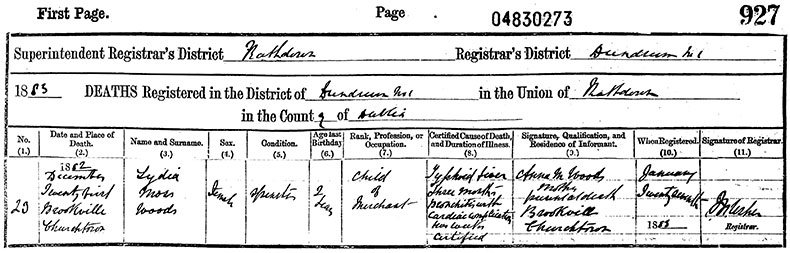 First Page.
Page 04830273
927
Superintendent Registrar's District Rathdown
Registrar's District Dundrum No 1
1883 DEATHS Registered in the District of Dundrum No 1 in the Union of Rathdown
in the County of Dublin
No. (1.)
Date and Place of Death. (2.)
Name and Surname. (3.)
Sex. (4.)
Condition. (5.)
Age last Birthday (6.)
Rank, Profession, or Occupation. (7.)
Certified Cause of Death, and Duration of Illness. (8.)
Signature, Qualification, and Residence of Informant. (9.)
When Registered. (10.)
Signature of Registrar. (11.)
23
1882
December
Twenty first
Brookville
Churchtown
Lydia
Moss
Woods
Female
Spinster
Child
of
Merchant
Typhoid fever
Three months
Bronchitis with
cardiac complication
two weeks
Certified
Anna M Woods
mother
present at death
Brookville
Churchtown
January
1883
Registrar.